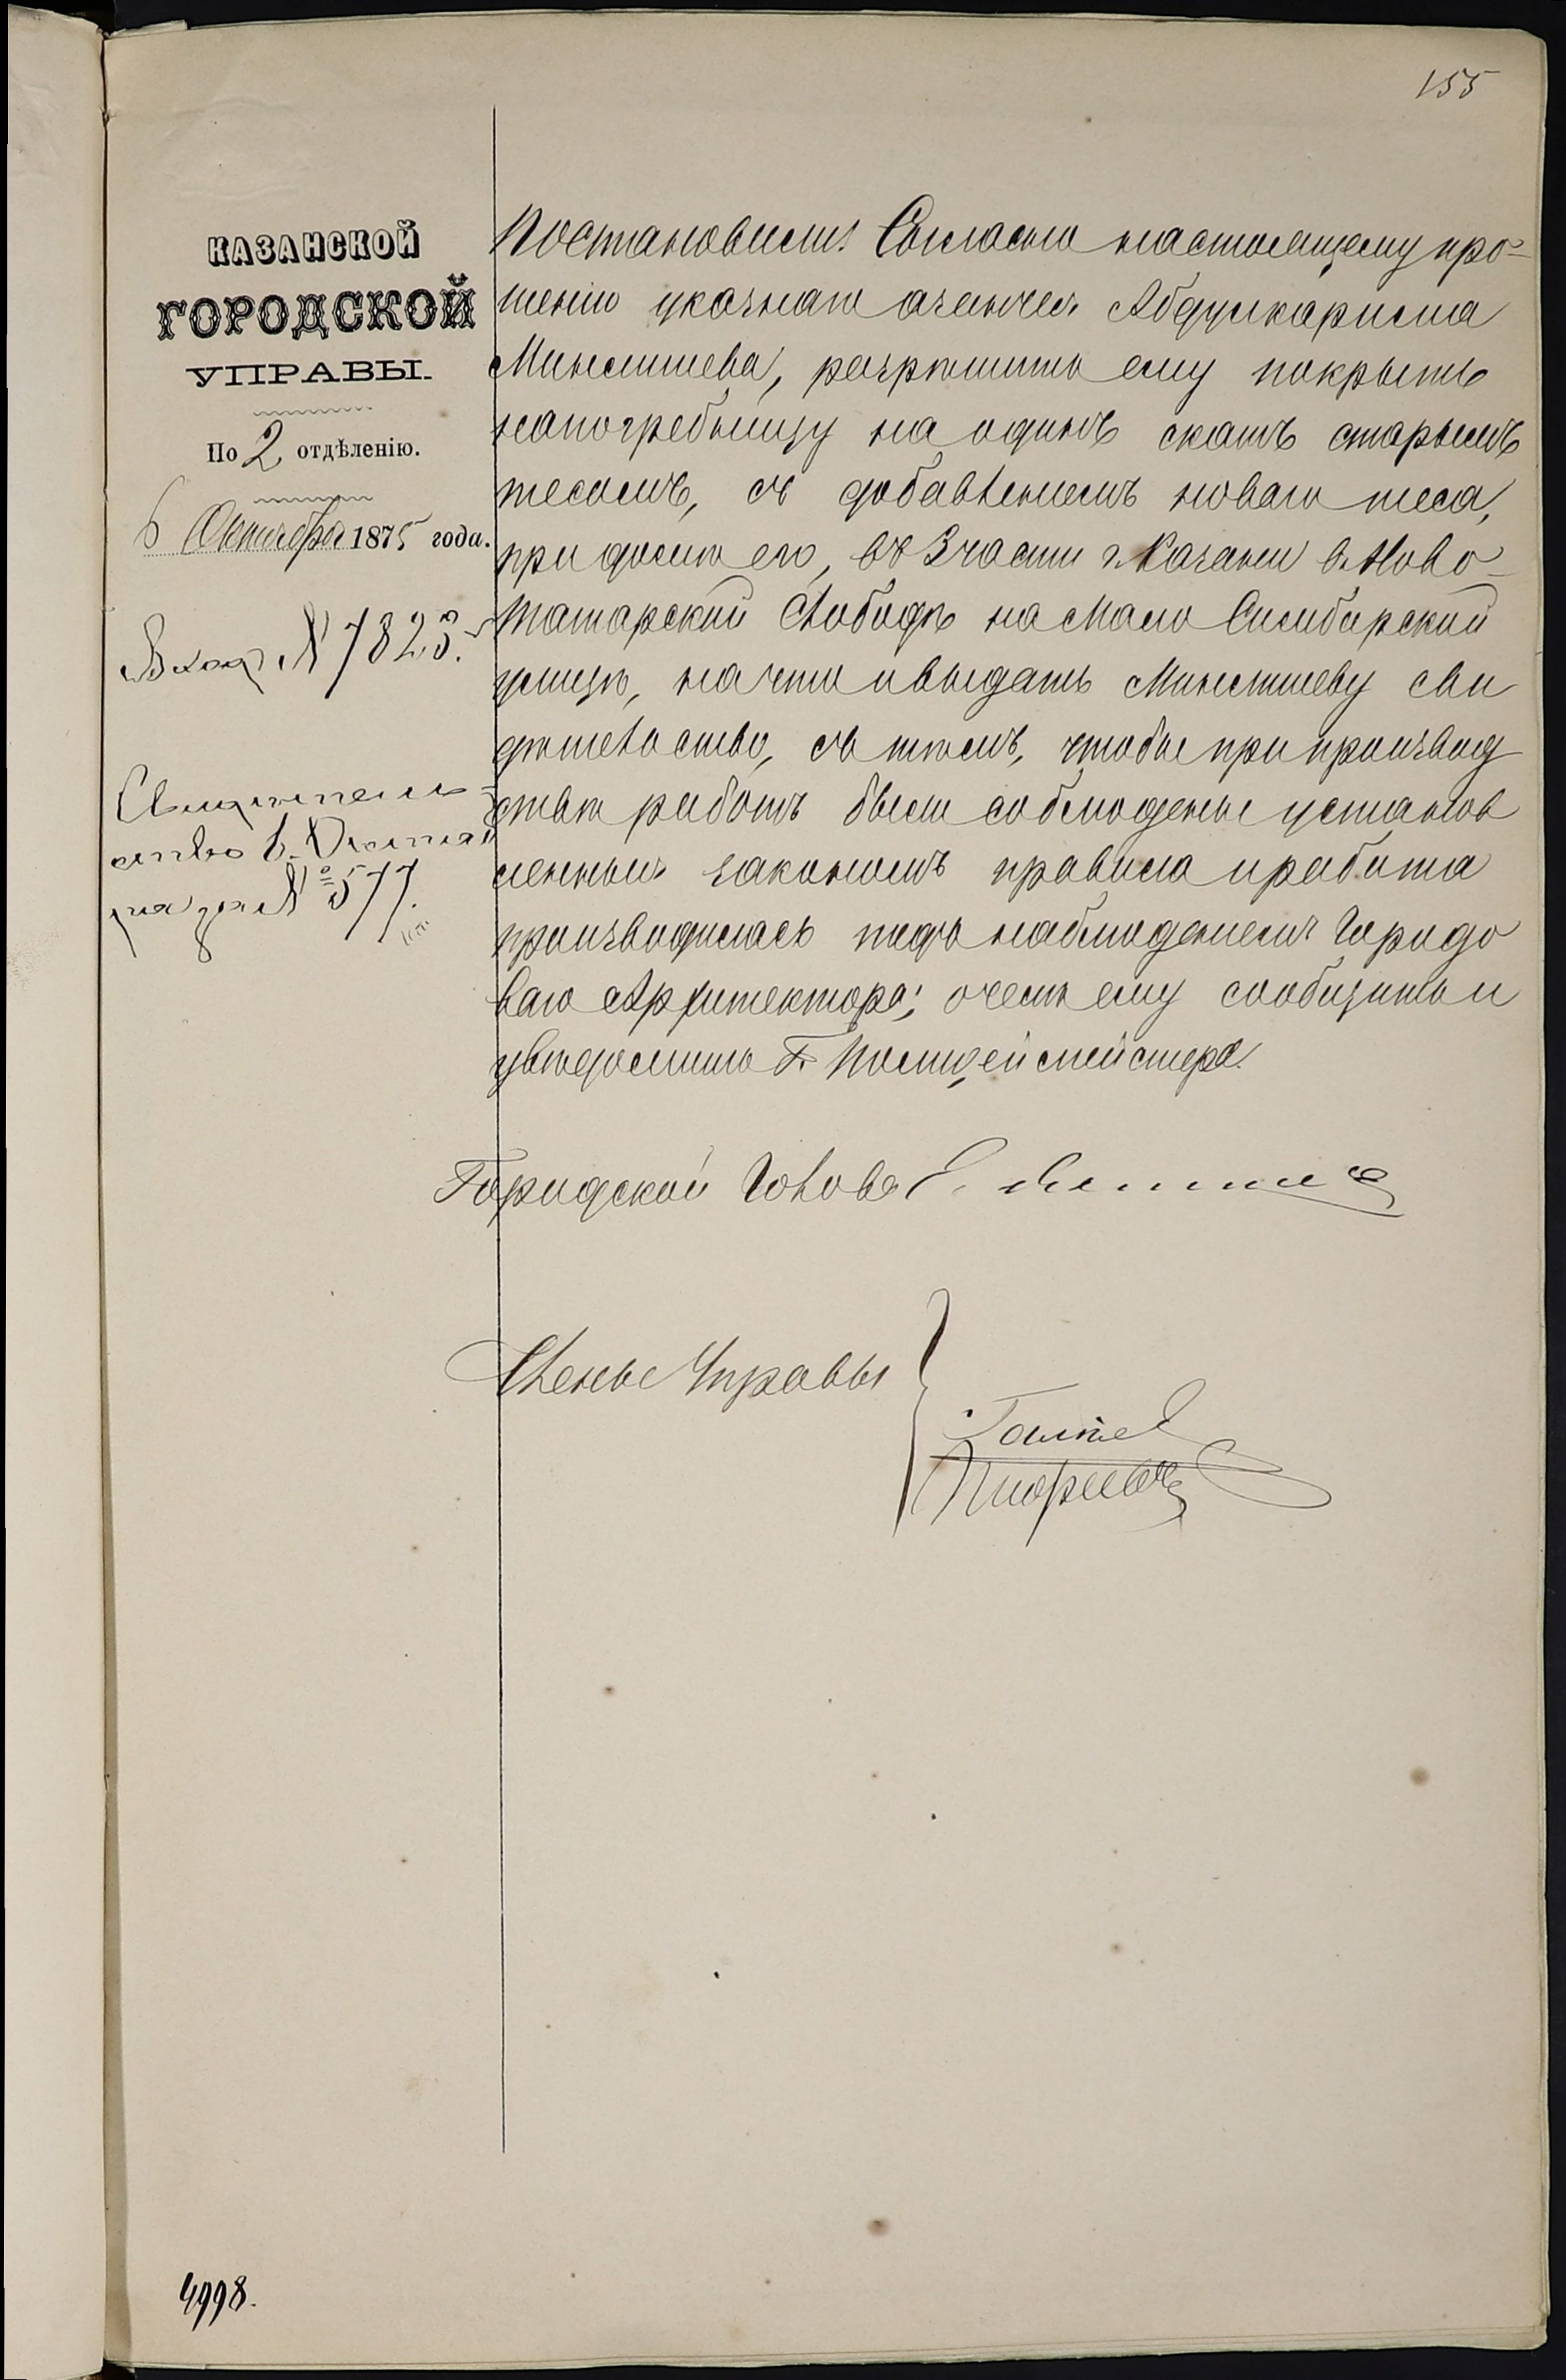 155
КАЗАНСКОЙ
ГОРОДСКОЙ
УПРАВЫ.
По 2 отдѣленію.
6 Октября 1875 года.
Вход. № 7825.
Свидѣтель-
ство в.
за № 577.
Постановили: Согласно настоящему про-
шенію указнаго азанчея Абдулкарима
Минлишева, разрѣшить ему покрыть
напогребницу на одинъ скатъ старымъ
тесомъ, съ добавленіемъ новаго теса,
при домѣ его, въ 3 части г. Казани в. Ново-
Татарской Слободѣ на Мало Симбирской
улицѣ, на что и выдать Минлишеву сви
дѣтельство, съ тѣмъ, чтобы при производ
ствѣ работъ были соблюдены установ
ленныя закономъ правила и работа
производилась подъ наблюденіемъ Городо
ваго Архитектора; о чемъ ему сообщить и
увѣдомить Г. Полицеймейстера.
Городской Голова Е.
Члены Управы
4998.